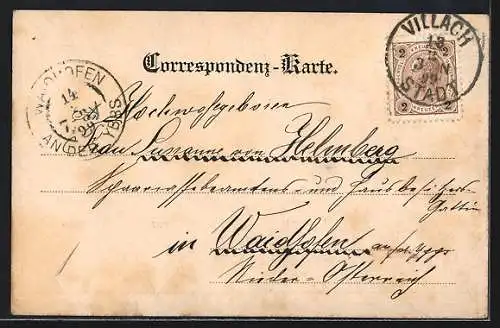 VILLACH
STADT
2 2
WAIDHOFEN
14
AN DER YBBS
Correspondenz-Karte.
Hochwohlgeboren
Frau Susanne von Helmberg
und Hausbesitzers-
Gattin
in Waidhofen an der Ybbs
Nieder-Österreich